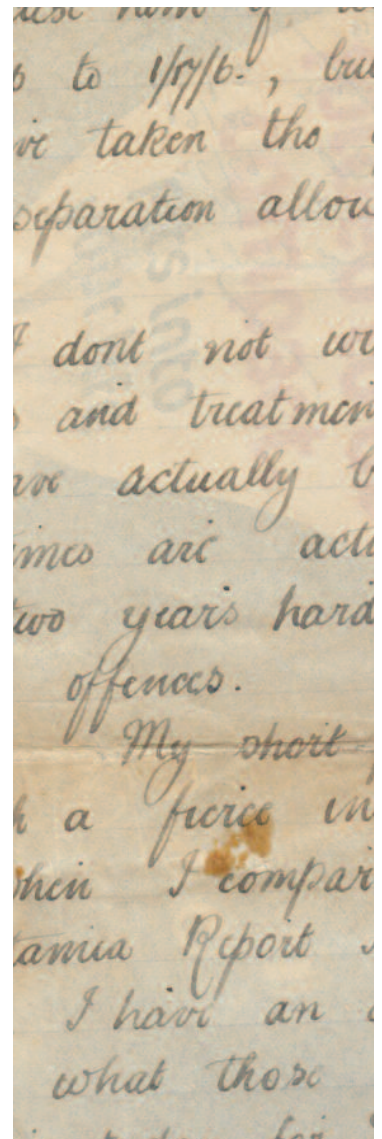 to 1/17/6., bu
ve taken tho
separation allow
I dont not wi
s and treatmen
ave actually b
imes are actu
two years hard
offences.
My short
h a fierce in
when I compar
tamia Report
I have an
what those